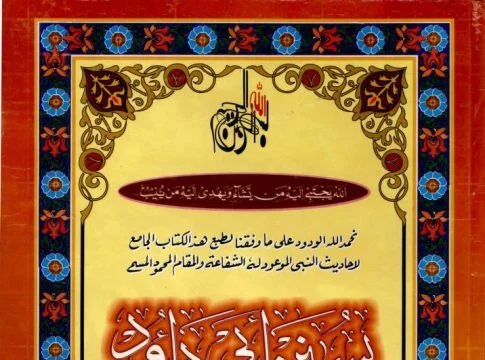 بسم الله الرحمن الرحيم
الله يجتبي إليه من يشاء ويهدي إليه من ينيب
نحمد الله الودود على ما وفقنا بطبع هذا الكتاب الجامع
لاحاديث النبي الموعود له الشفاعة والمقام المحمود المسمى
سنن أبي داود